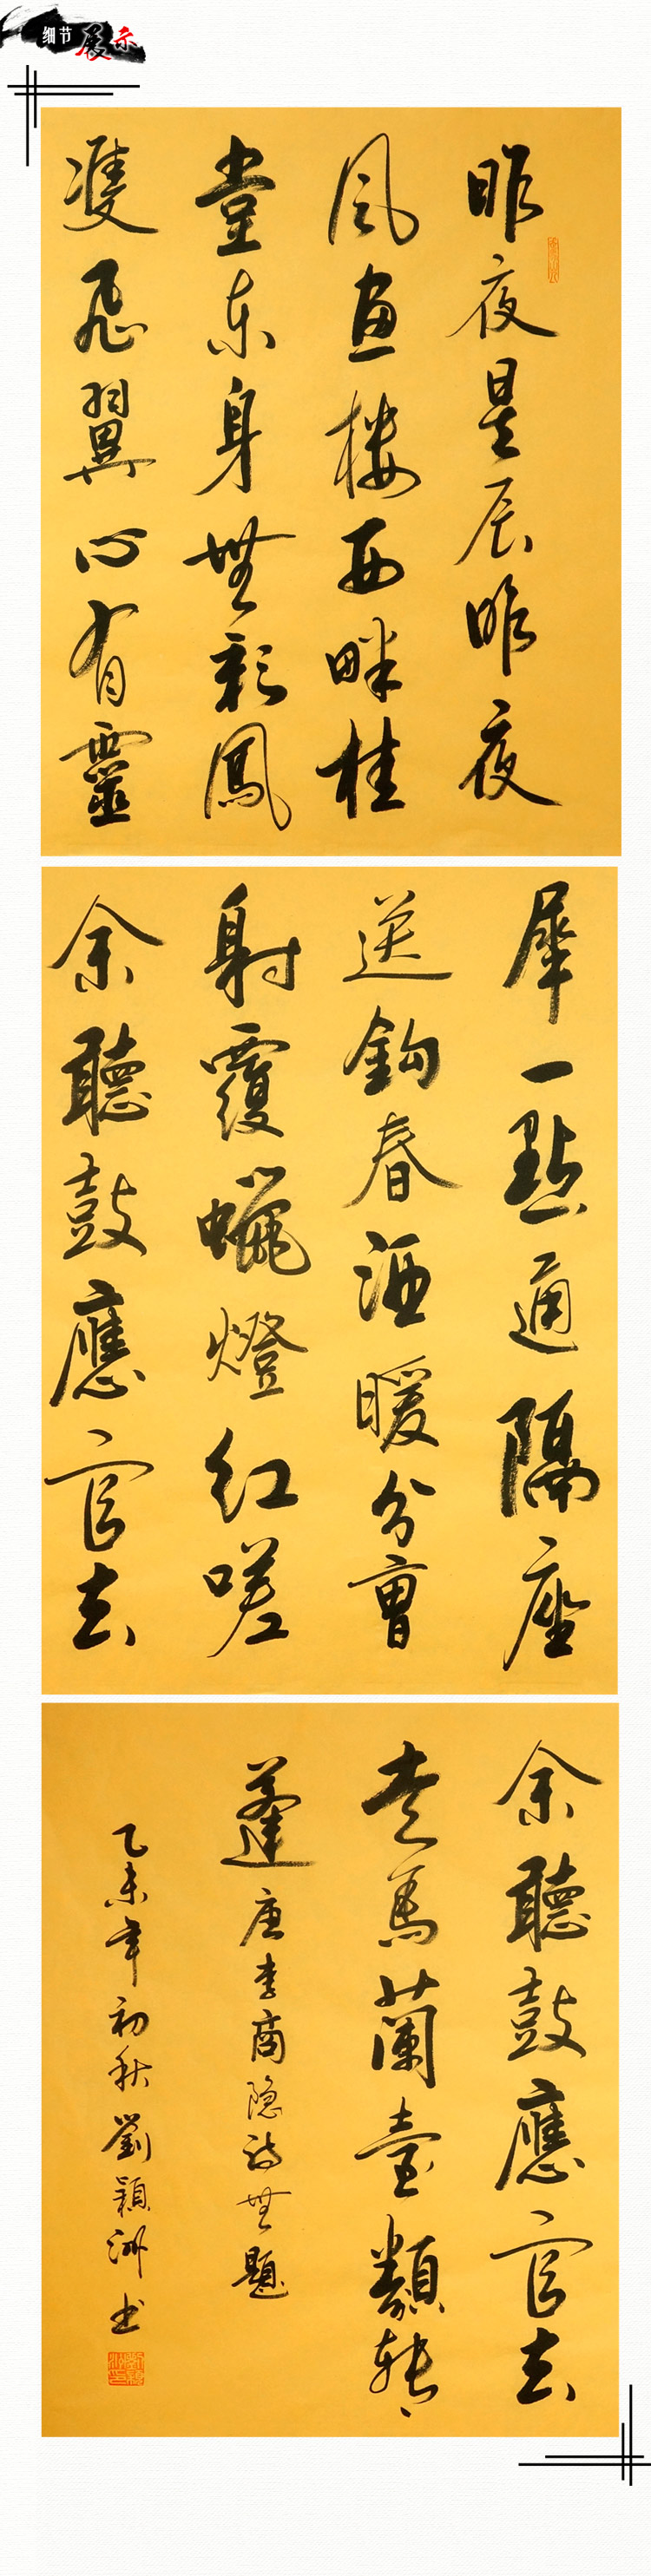 细节展示
昨夜星辰昨夜
風畫樓西畔桂
堂東身無彩鳳
雙飛翼心有靈
犀一點通隔座
送鈎春酒暖分曹
射覆蠟燈紅嗟
余聽鼓應官去
余聽鼓應官去
走馬蘭臺類轉
蓬 唐李商隱詩無題
乙未年初秋劉穎洲書